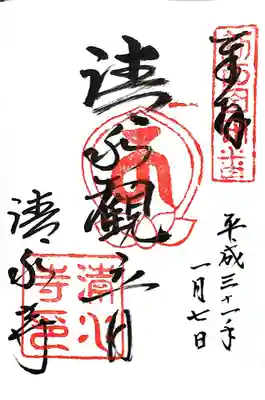 奉拝
平成三十一年
一月七日
清水観音
清水寺
清水寺印